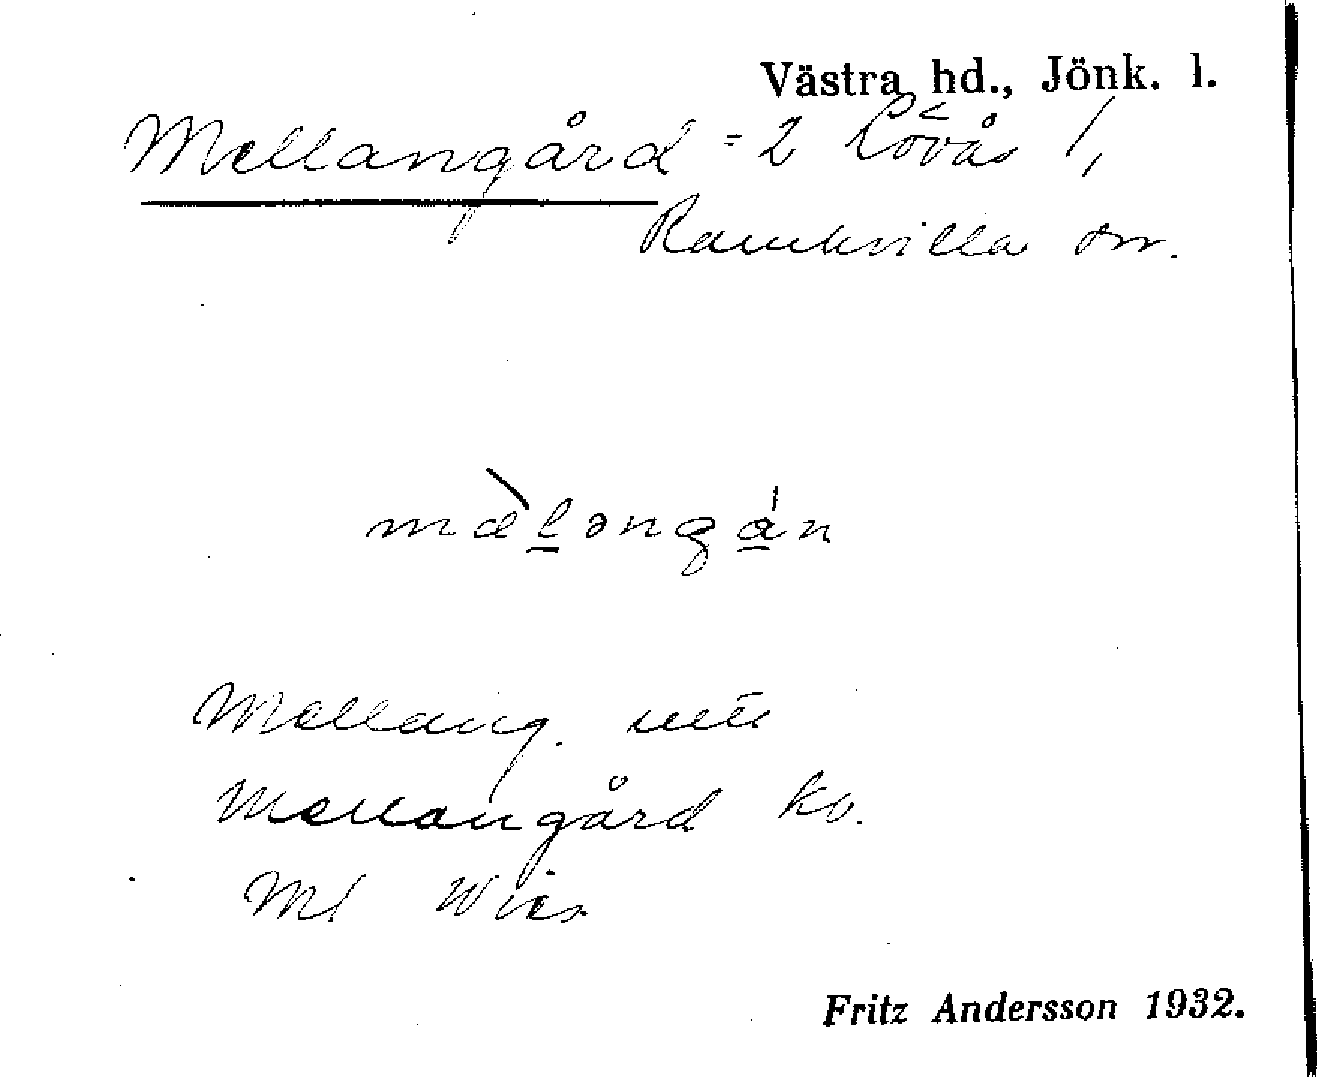 Västra hd., Jönk. l.
Mellangård = 2 Lövås /,
Ramkvilla sn.
mæ̀l̲əngá̲n
Mellang. utt
Mellangård ko.
Ml Wies
Fritz Andersson 1932.